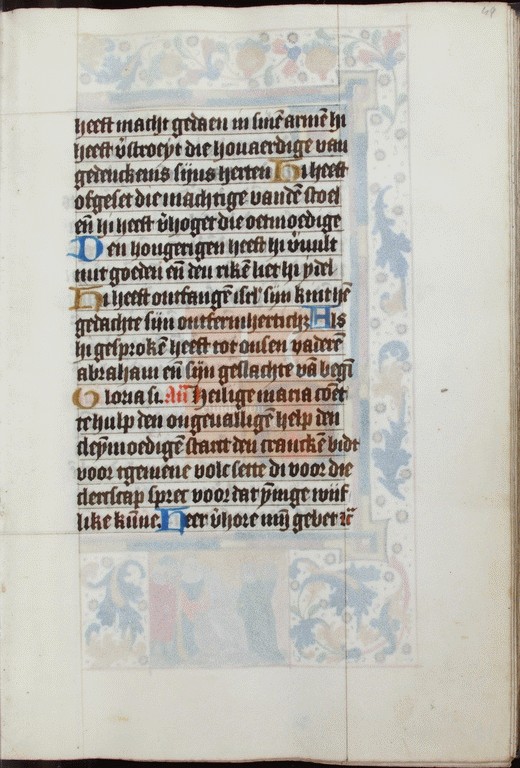 48
heeft macht gedaen in sinē armē hi
heeft v̄stroeyt die houaerdige van
gedenckenis sijns herten Hi heeft
ofgeset die machtige vandē stoel
eñ hi heeft v̄hoget die oetmoedige
Den hongerigen heeft hi v̄uult
mit goeden eñ den rikē liet hi ydel
Hi heeft ontfangē isrl' sijn kint hē
gedachte sijn ontfermherticħz Als
hi gesprokē heeft tot onsen vaderē
abraham eñ sijn geslachte vā begī
Gloria si. Añ Heilige maria cōet
te hulp den ongeualligē help den
cleȳmoedigen starct den cranckē bidt
voor tgemene volc sette di voor die
clercscap sprec voor dat ȳnige wijf
like kūne. Heer v̄hore mijī gebet ic̄